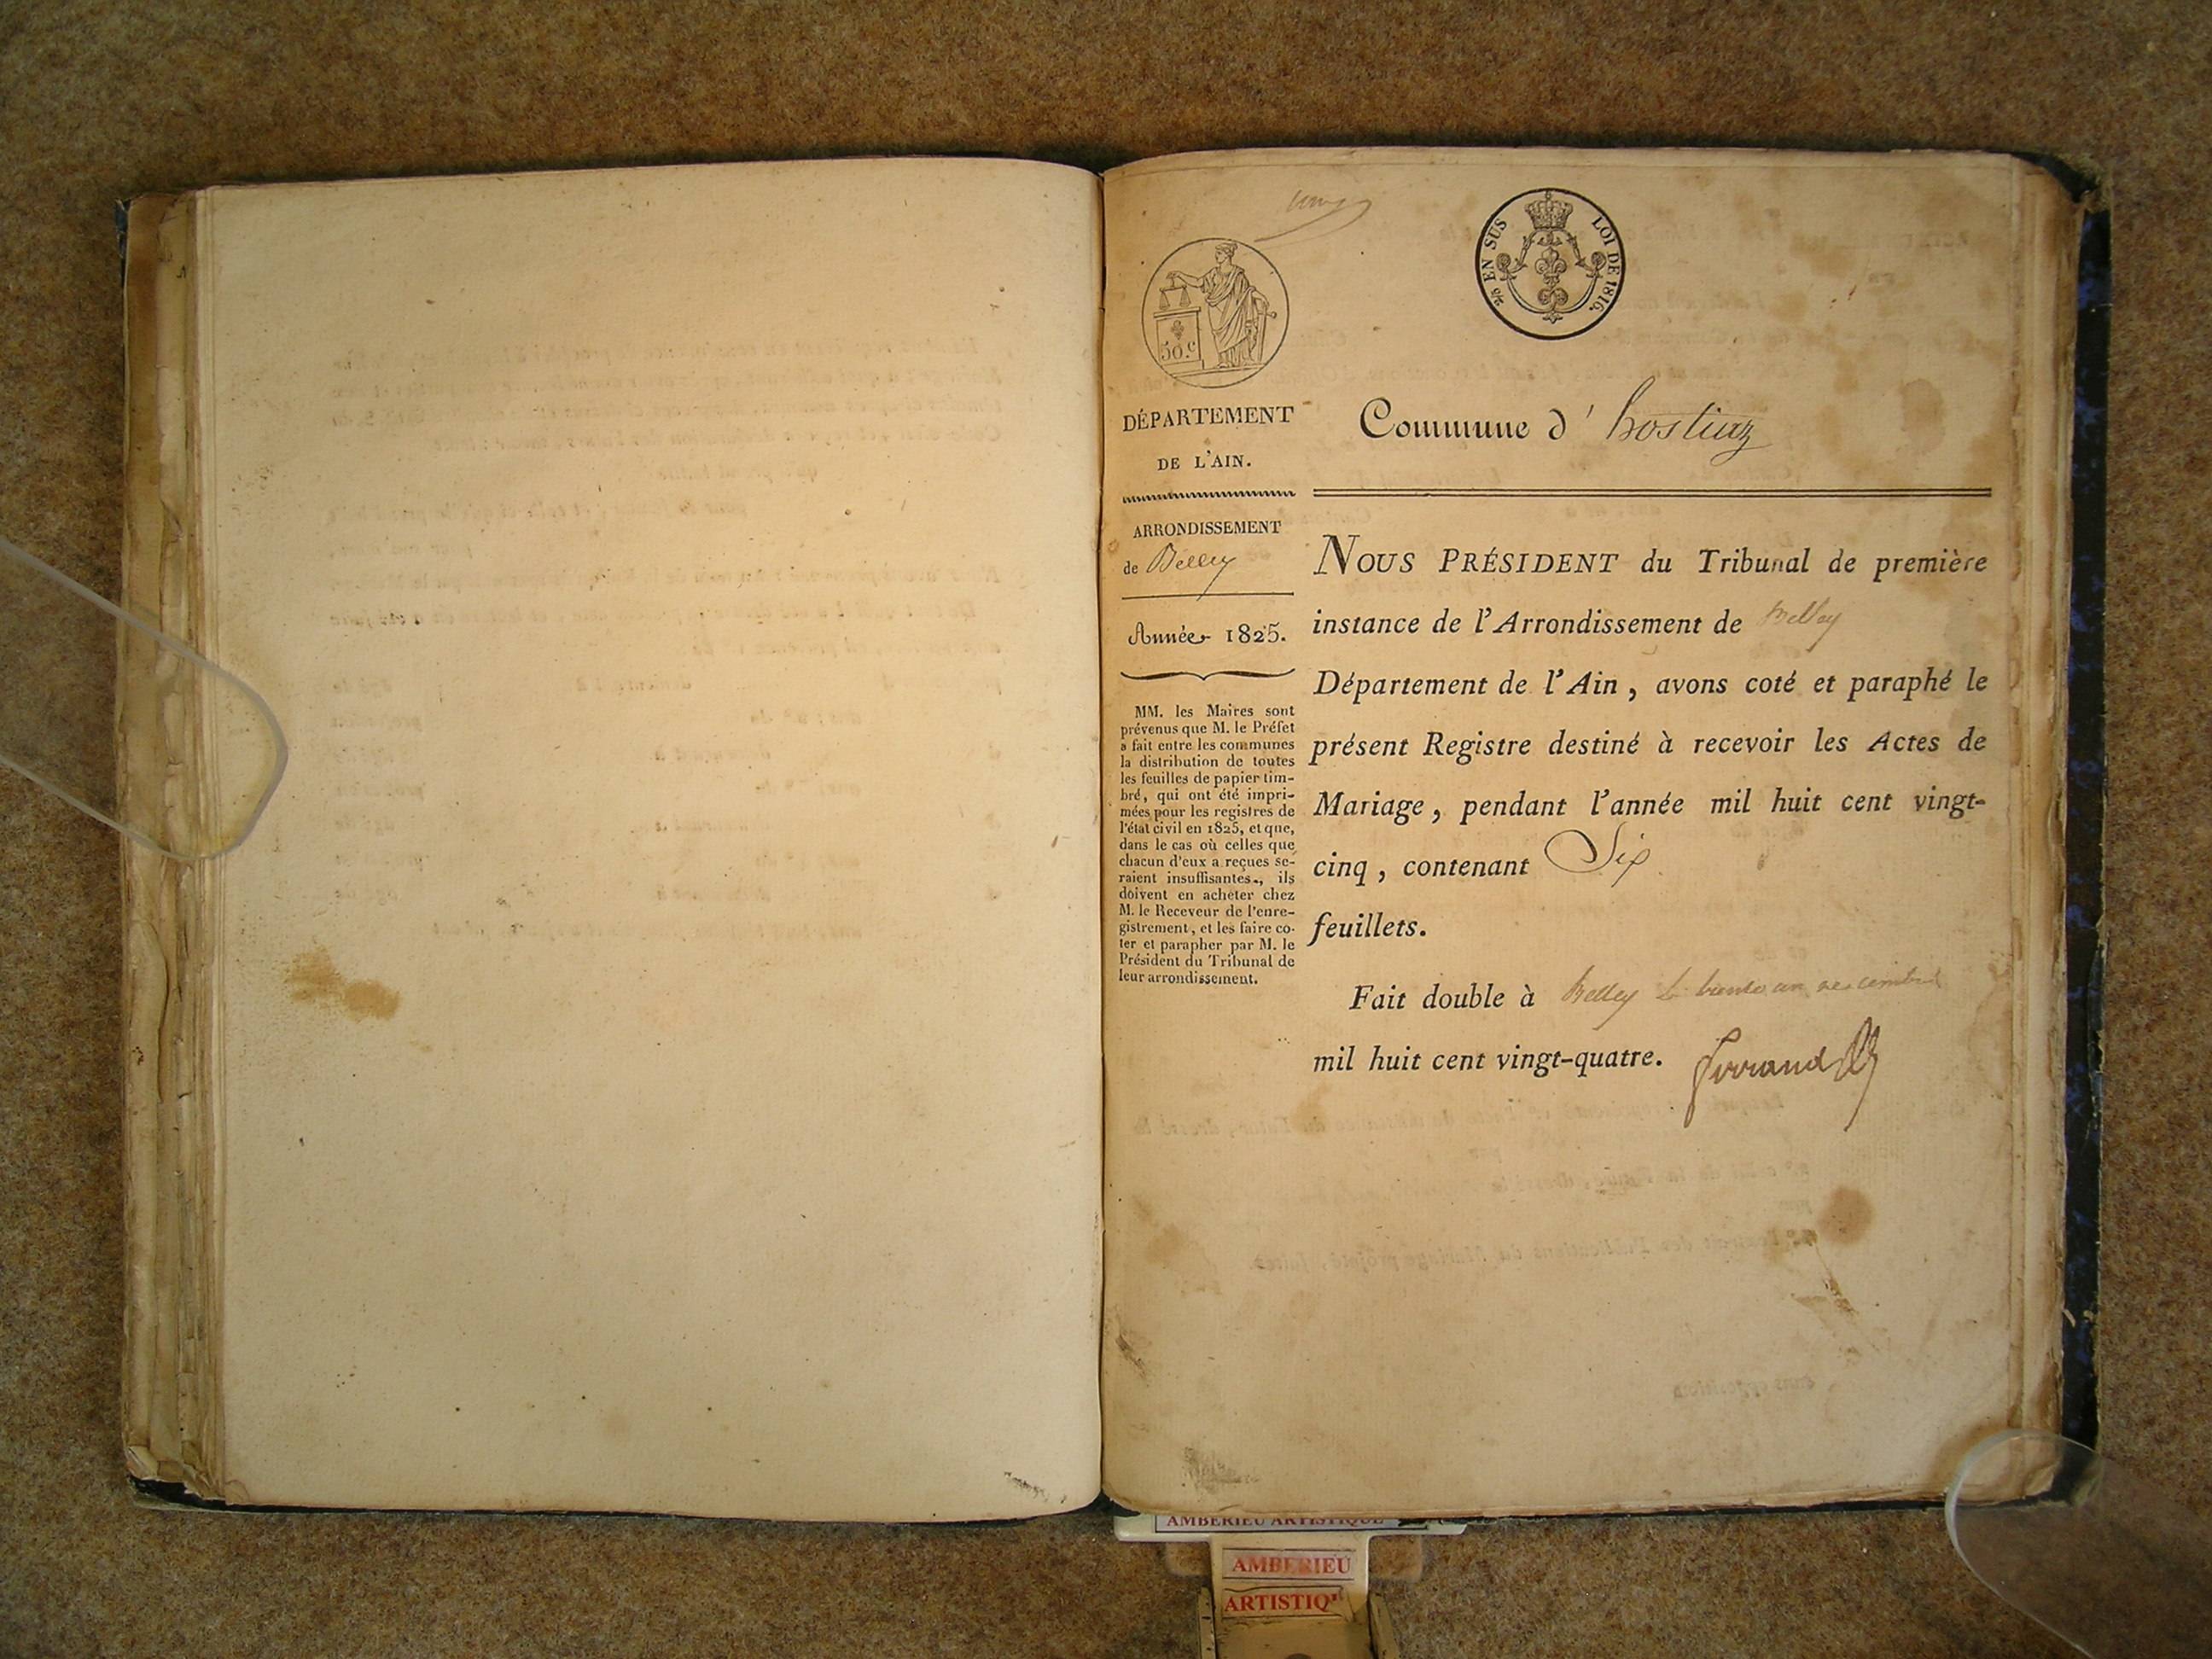 2/5 EN SUS LOI DE 1816.
50.c
DÉPARTEMENT
DE L'AIN.
ARRONDISSEMENT
de Belley
Année 1825.
MM. les Maires sont
prévenus que M. le Préfet
a fait entre les communes
la distribution de toutes
les feuilles de papier tim-
bré, qui ont été impri-
mées pour les registres de
l'état civil en 1825, et que,
dans le cas où celles que
chacun d'eux a reçues se-
raient insuffisantes, ils
doivent en acheter chez
M. le Receveur de l'enre-
gistrement, et les faire co-
ter et parapher par M. le
Président du Tribunal de
leur arrondissement.
Commune d' hostiaz
NOUS PRÉSIDENT du Tribunal de première
instance de l'Arrondissement de Belley
Département de l'Ain, avons coté et paraphé le
présent Registre destiné à recevoir les Actes de
Mariage, pendant l'année mil huit cent vingt-
cinq, contenant Six
feuillets.
Fait double à Belley le trente un décembre
mil huit cent vingt-quatre.
AMBERIEU ARTISTIQUE
AMBERIEU
ARTISTIQ